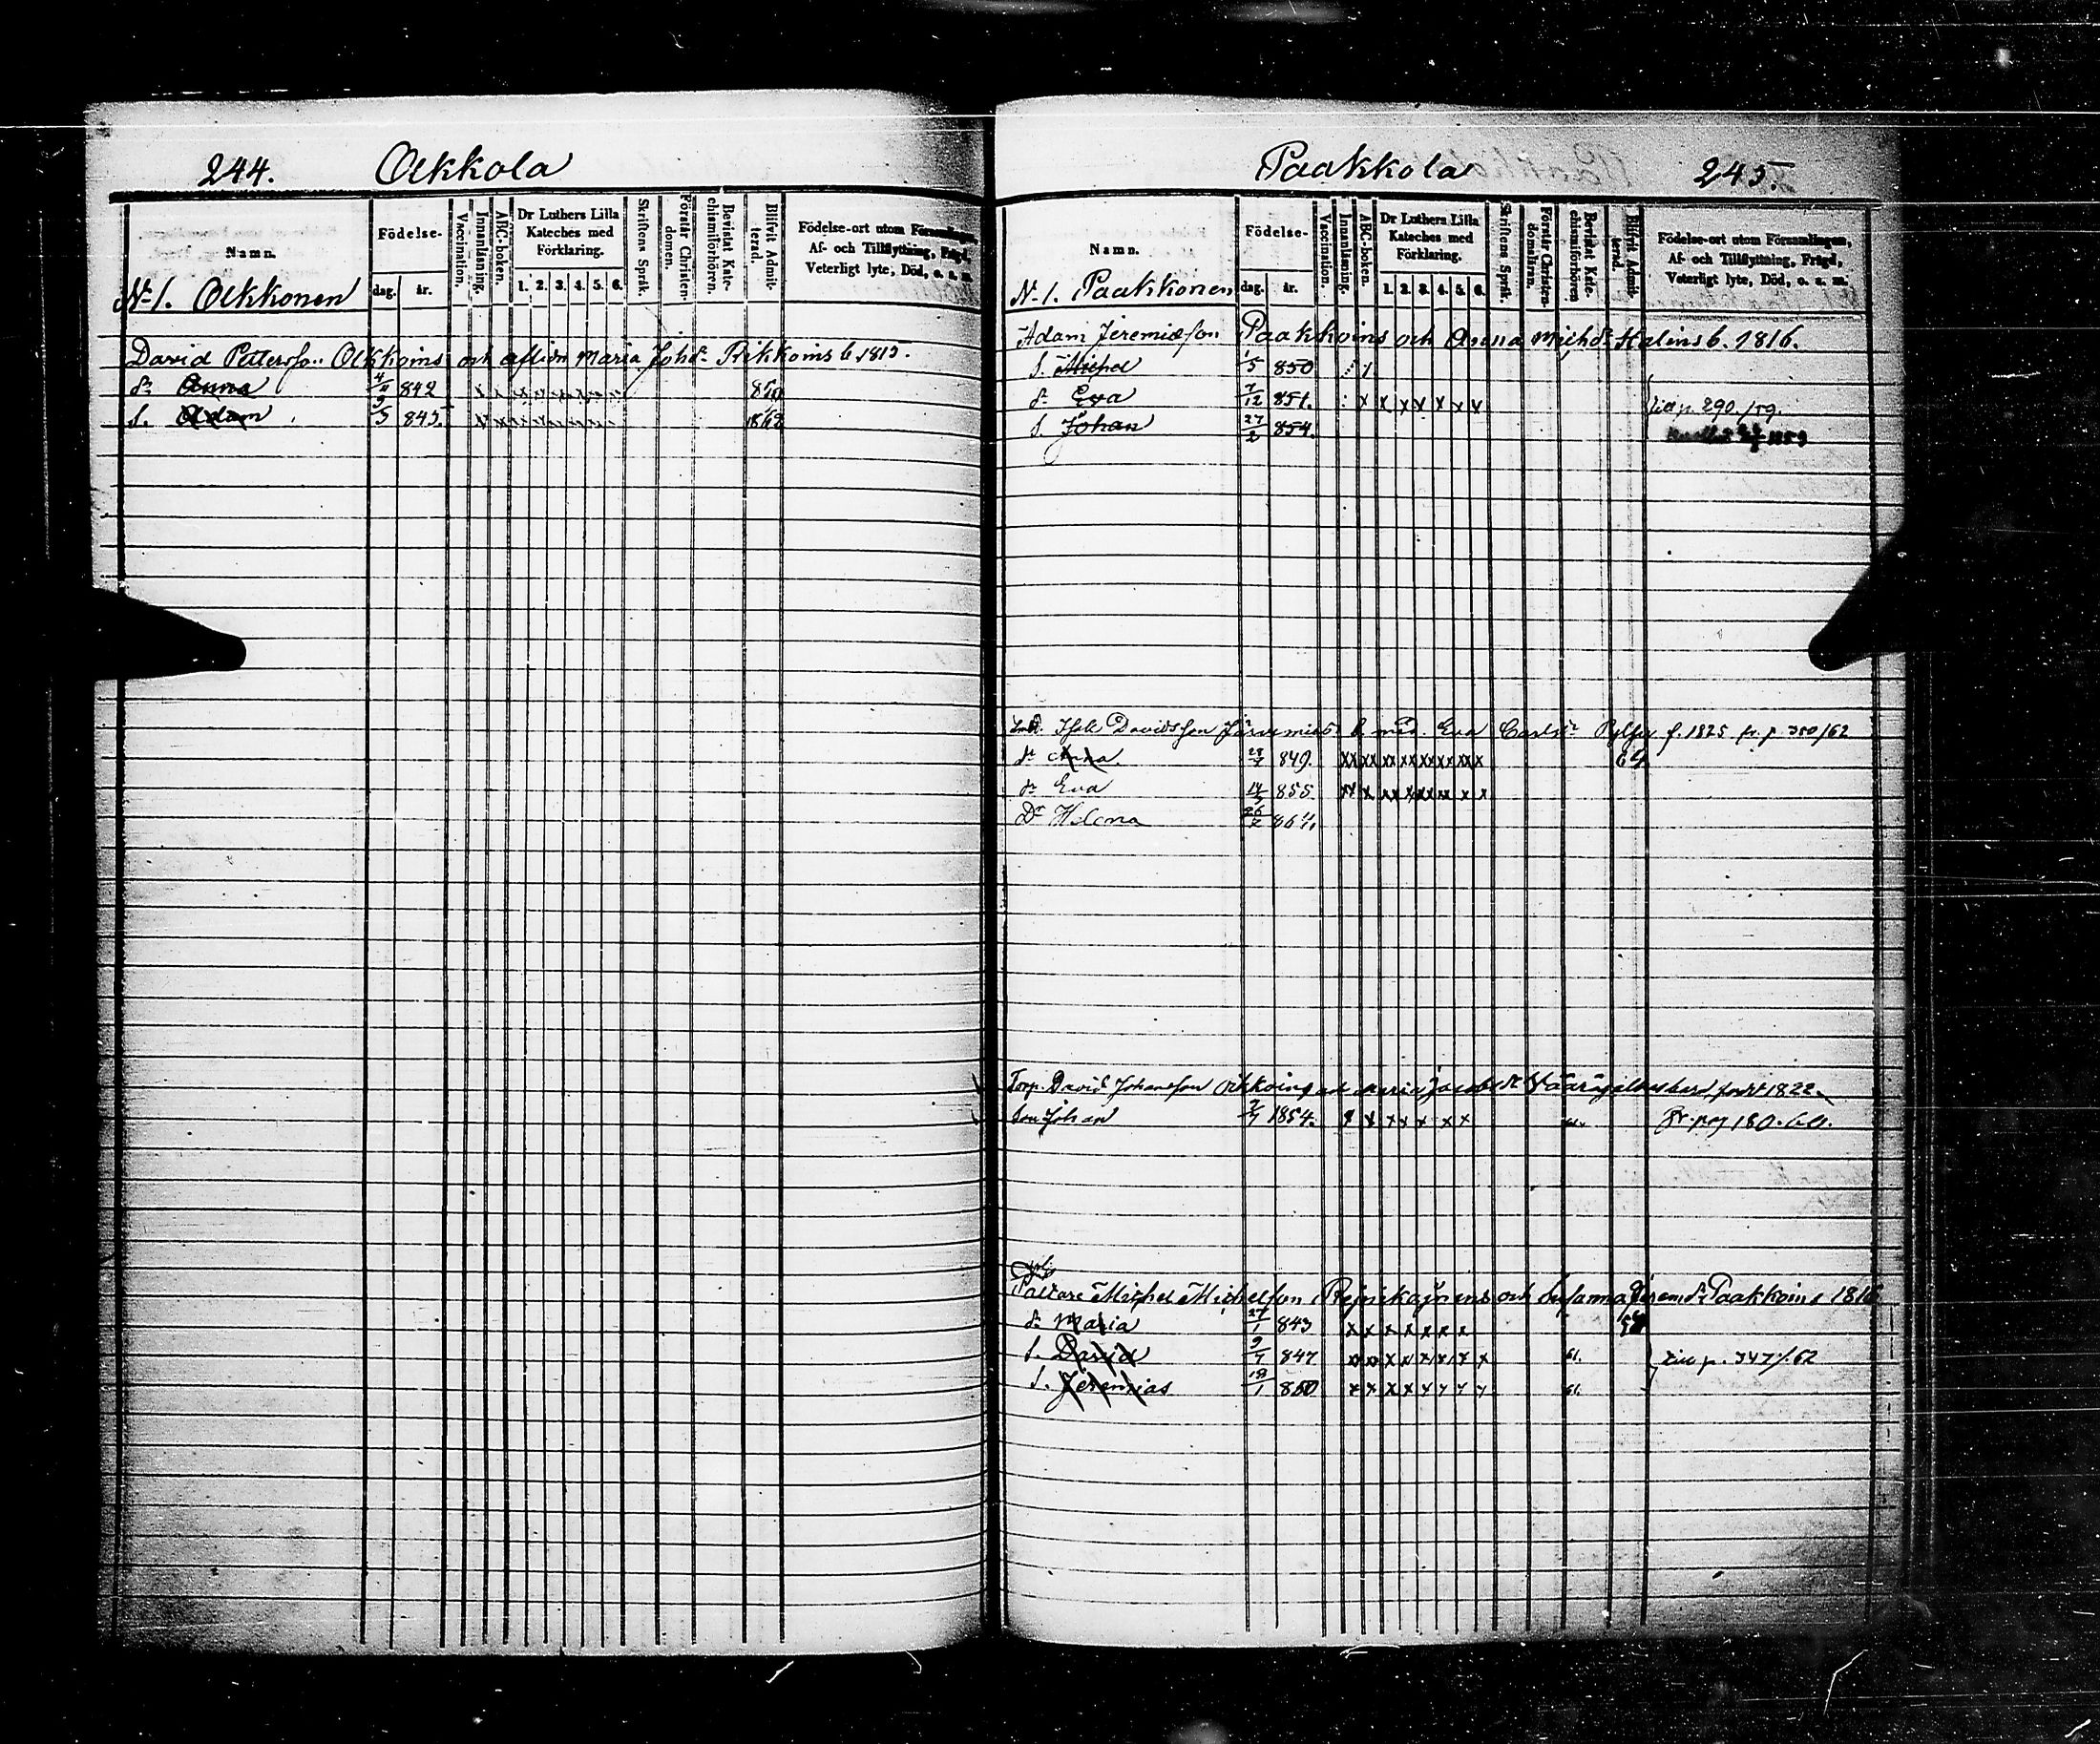 244. Oikkola
Namn. Födelse- dag. år. Vaccination. Innanläsning. ABC-boken. Dr Luthers Lilla Kateches med Förklaring. 1. 2. 3. 4. 5. 6. Skriftens Språk. Förstår Christendomen. Bevistat Katechismiförhören. Blifvit Admitterad. Födelse-ort utom Församlingen, Af- och Tillflyttning, Frägd, Veterligt lyte, Död, o. s. m.
No 1. Oikkonen
David Pettersson Oikkoins och aflidn Maria Johds Rikkoins b. 1815.
dr Anna 4/4 842
S. Adam 3/5 845. 1862
Paakkola 245.
Namn. Födelse- dag. år. Vaccination. Innanläsning. ABC-boken. Dr Luthers Lilla Kateches med Förklaring. 1. 2. 3. 4. 5. 6. Skriftens Språk. Förstår Christendomsläran. Bevistat Katechismiförhören Blifvit Admitterad. Födelse-ort utom Församlingen, Af- och Tillflyttning, Frägd, Veterligt lyte, Död, o. s. m.
No 1. Paakkonen
Adam Jeremiæson Paakkoins och Anna Michds Halins b. 1816.
S. Michel 1/5 850
dr Eva 7/12 851. x x x x x x x
S. Johan 27/2 854. p. 290./59.
1859
Davidsson b. med. Eva Carlsdr f. 1825 fr. p. 350/62
dr Anna 28/7 849. xx xx xx xx xx xx xx 64
dr Eva 14/5 855 xx x xx x xx xx x x
Dr Helena 26/2 864.
Torp. David Johansson Oikkoins och Maria Jacobsdr född 1822.
Son Johan 2/7 1854. x x x x x x x fr. pag 180. 60.
Michel Michelson och Susanna Jerem.dr Paakkoins 1816
dr Maria 27/1 843 x x x x x x x
S. David 9/7 847 xx xx x x x x x x 61. p. 347/.62
S. Jeremias 18/1 850 x x x x x x x x 61.